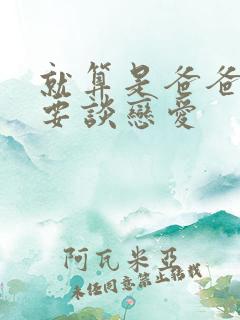 就算是爸爸
要談戀愛
阿瓦米亞
未經同意禁止轉載